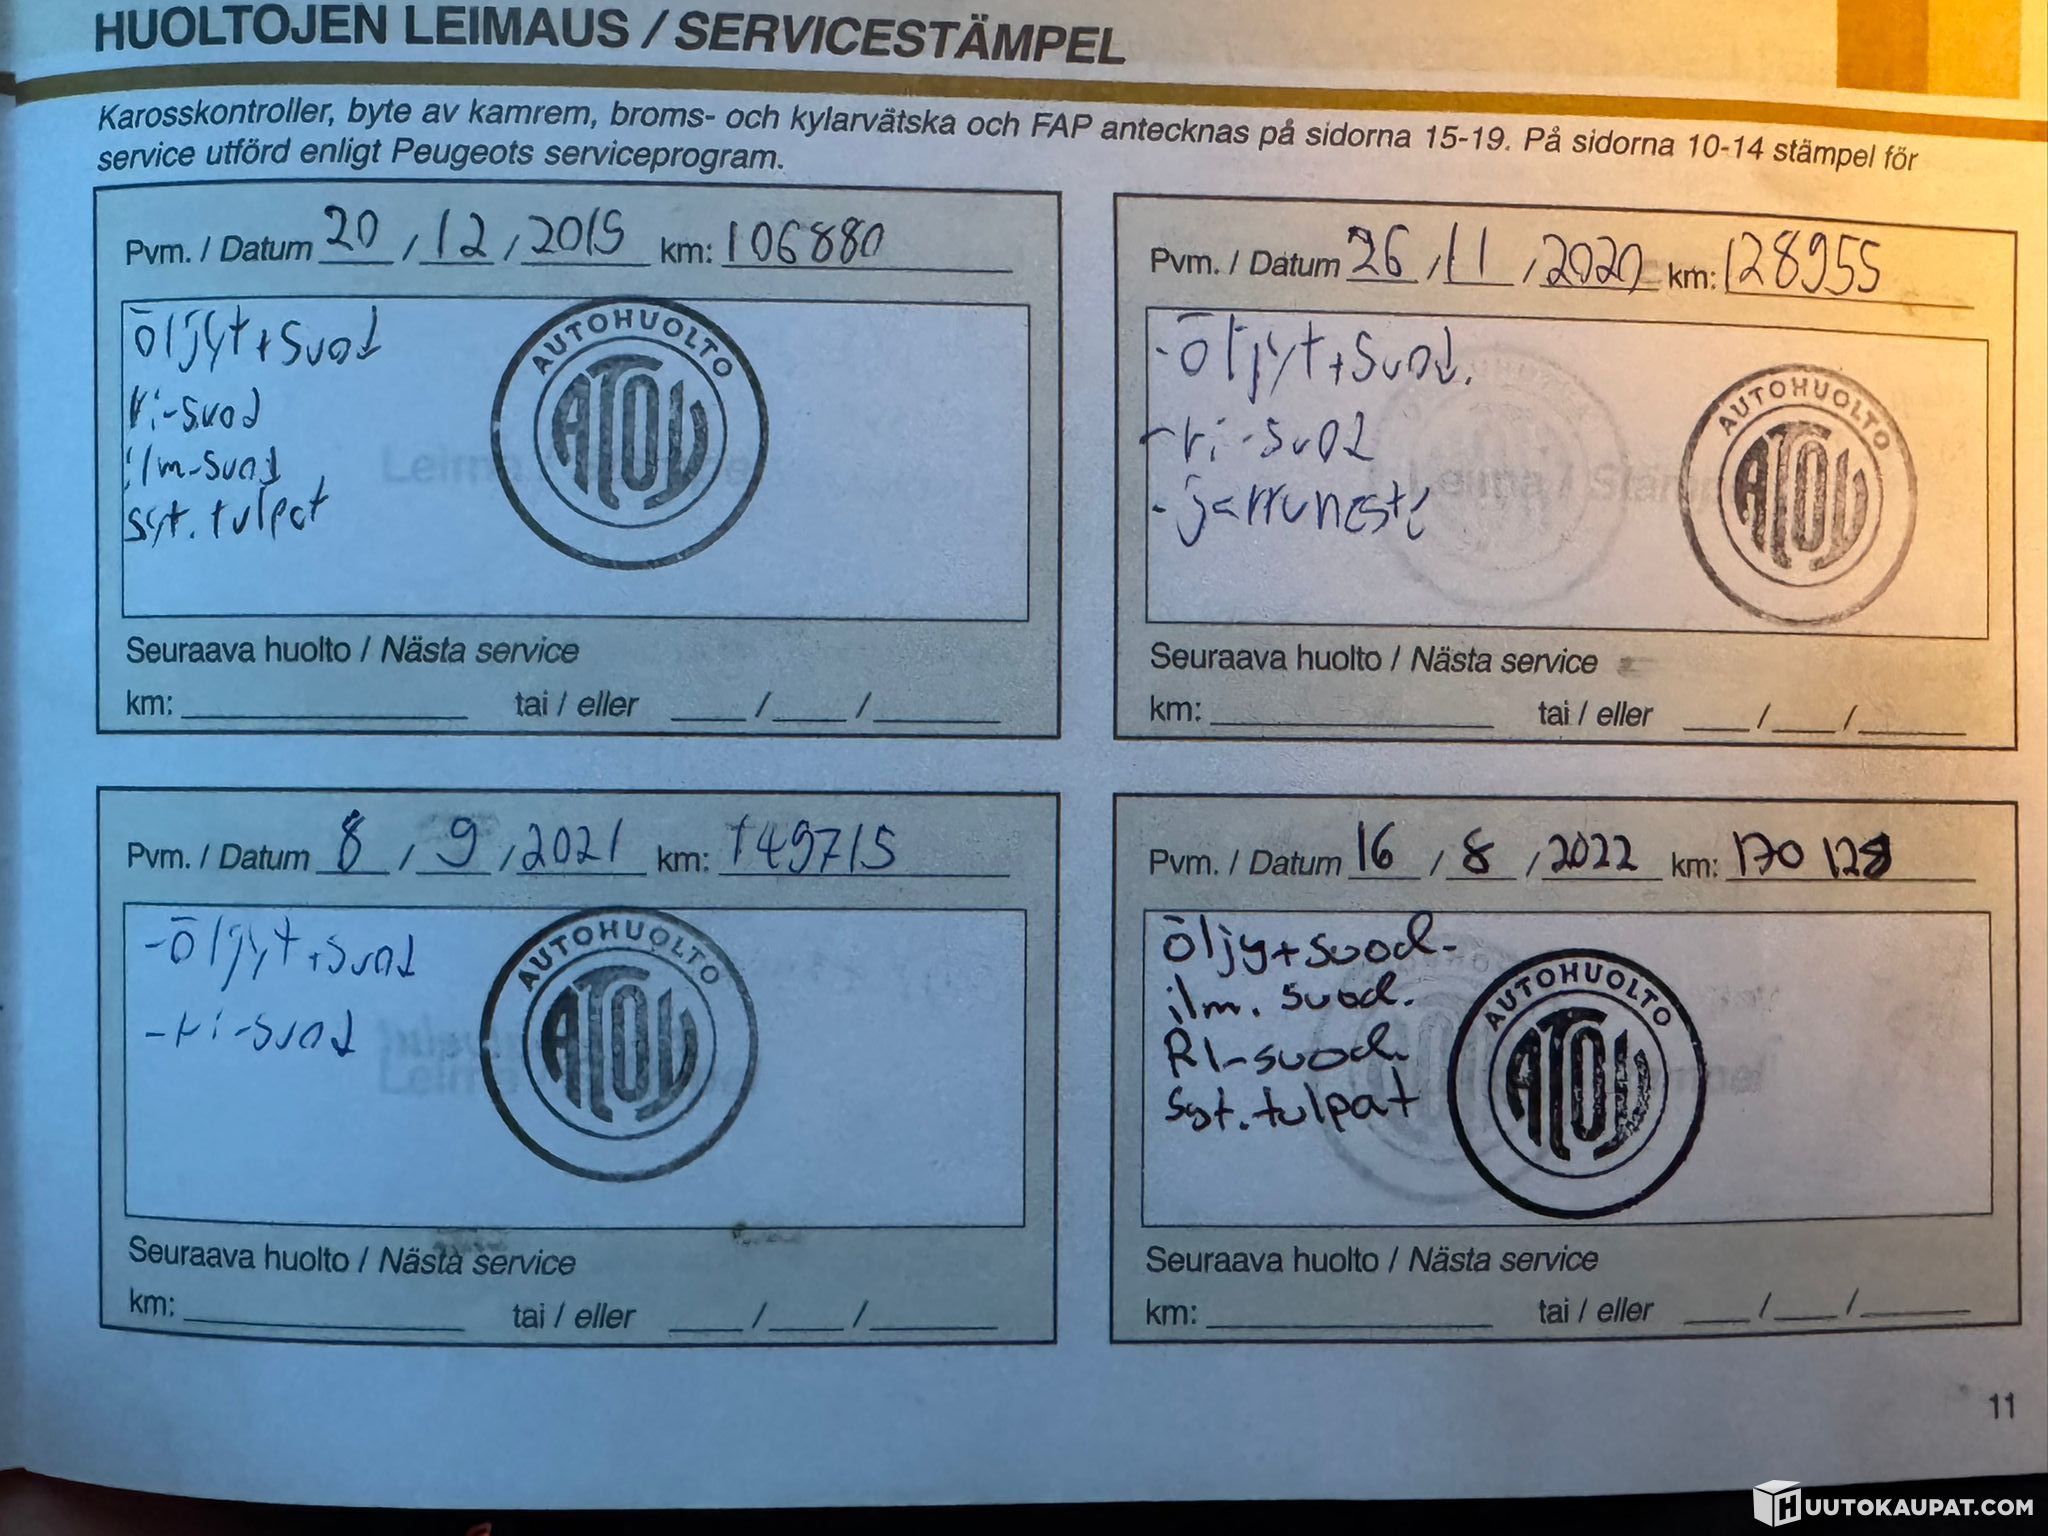 HUOLTOJEN LEIMAUS / SERVICESTÄMPEL
Karosskontroller, byte av kamrem, broms- och kylarvätska och FAP antecknas på sidorna 15-19. På sidorna 10-14 stämpel för
service utförd enligt Peugeots serviceprogram.
Pvm. / Datum 20 / 12 / 2019 km: 106880
öljyt + suod
ri-suod
ilm-suod
syt. tulpat
AUTOHUOLTO
ATOY
Seuraava huolto / Nästa service
km: tai / eller / /
Pvm. / Datum 26 / 11 / 2020 km: 128955
- öljyt + suod.
- ri-suod
- jarruneste
AUTOHUOLTO
ATOY
Seuraava huolto / Nästa service
km: tai / eller / /
Pvm. / Datum 8 / 9 / 2021 km: 149715
- öljyt + suod
- ri-suod
AUTOHUOLTO
ATOY
Seuraava huolto / Nästa service
km: tai / eller / /
Pvm. / Datum 16 / 8 / 2022 km: 170 128
öljy + suod-
ilm. suod.
RI-suod.
syt. tulpat
AUTOHUOLTO
ATOY
Seuraava huolto / Nästa service
km: tai / eller / /
11
HUUTOKAUPAT.COM